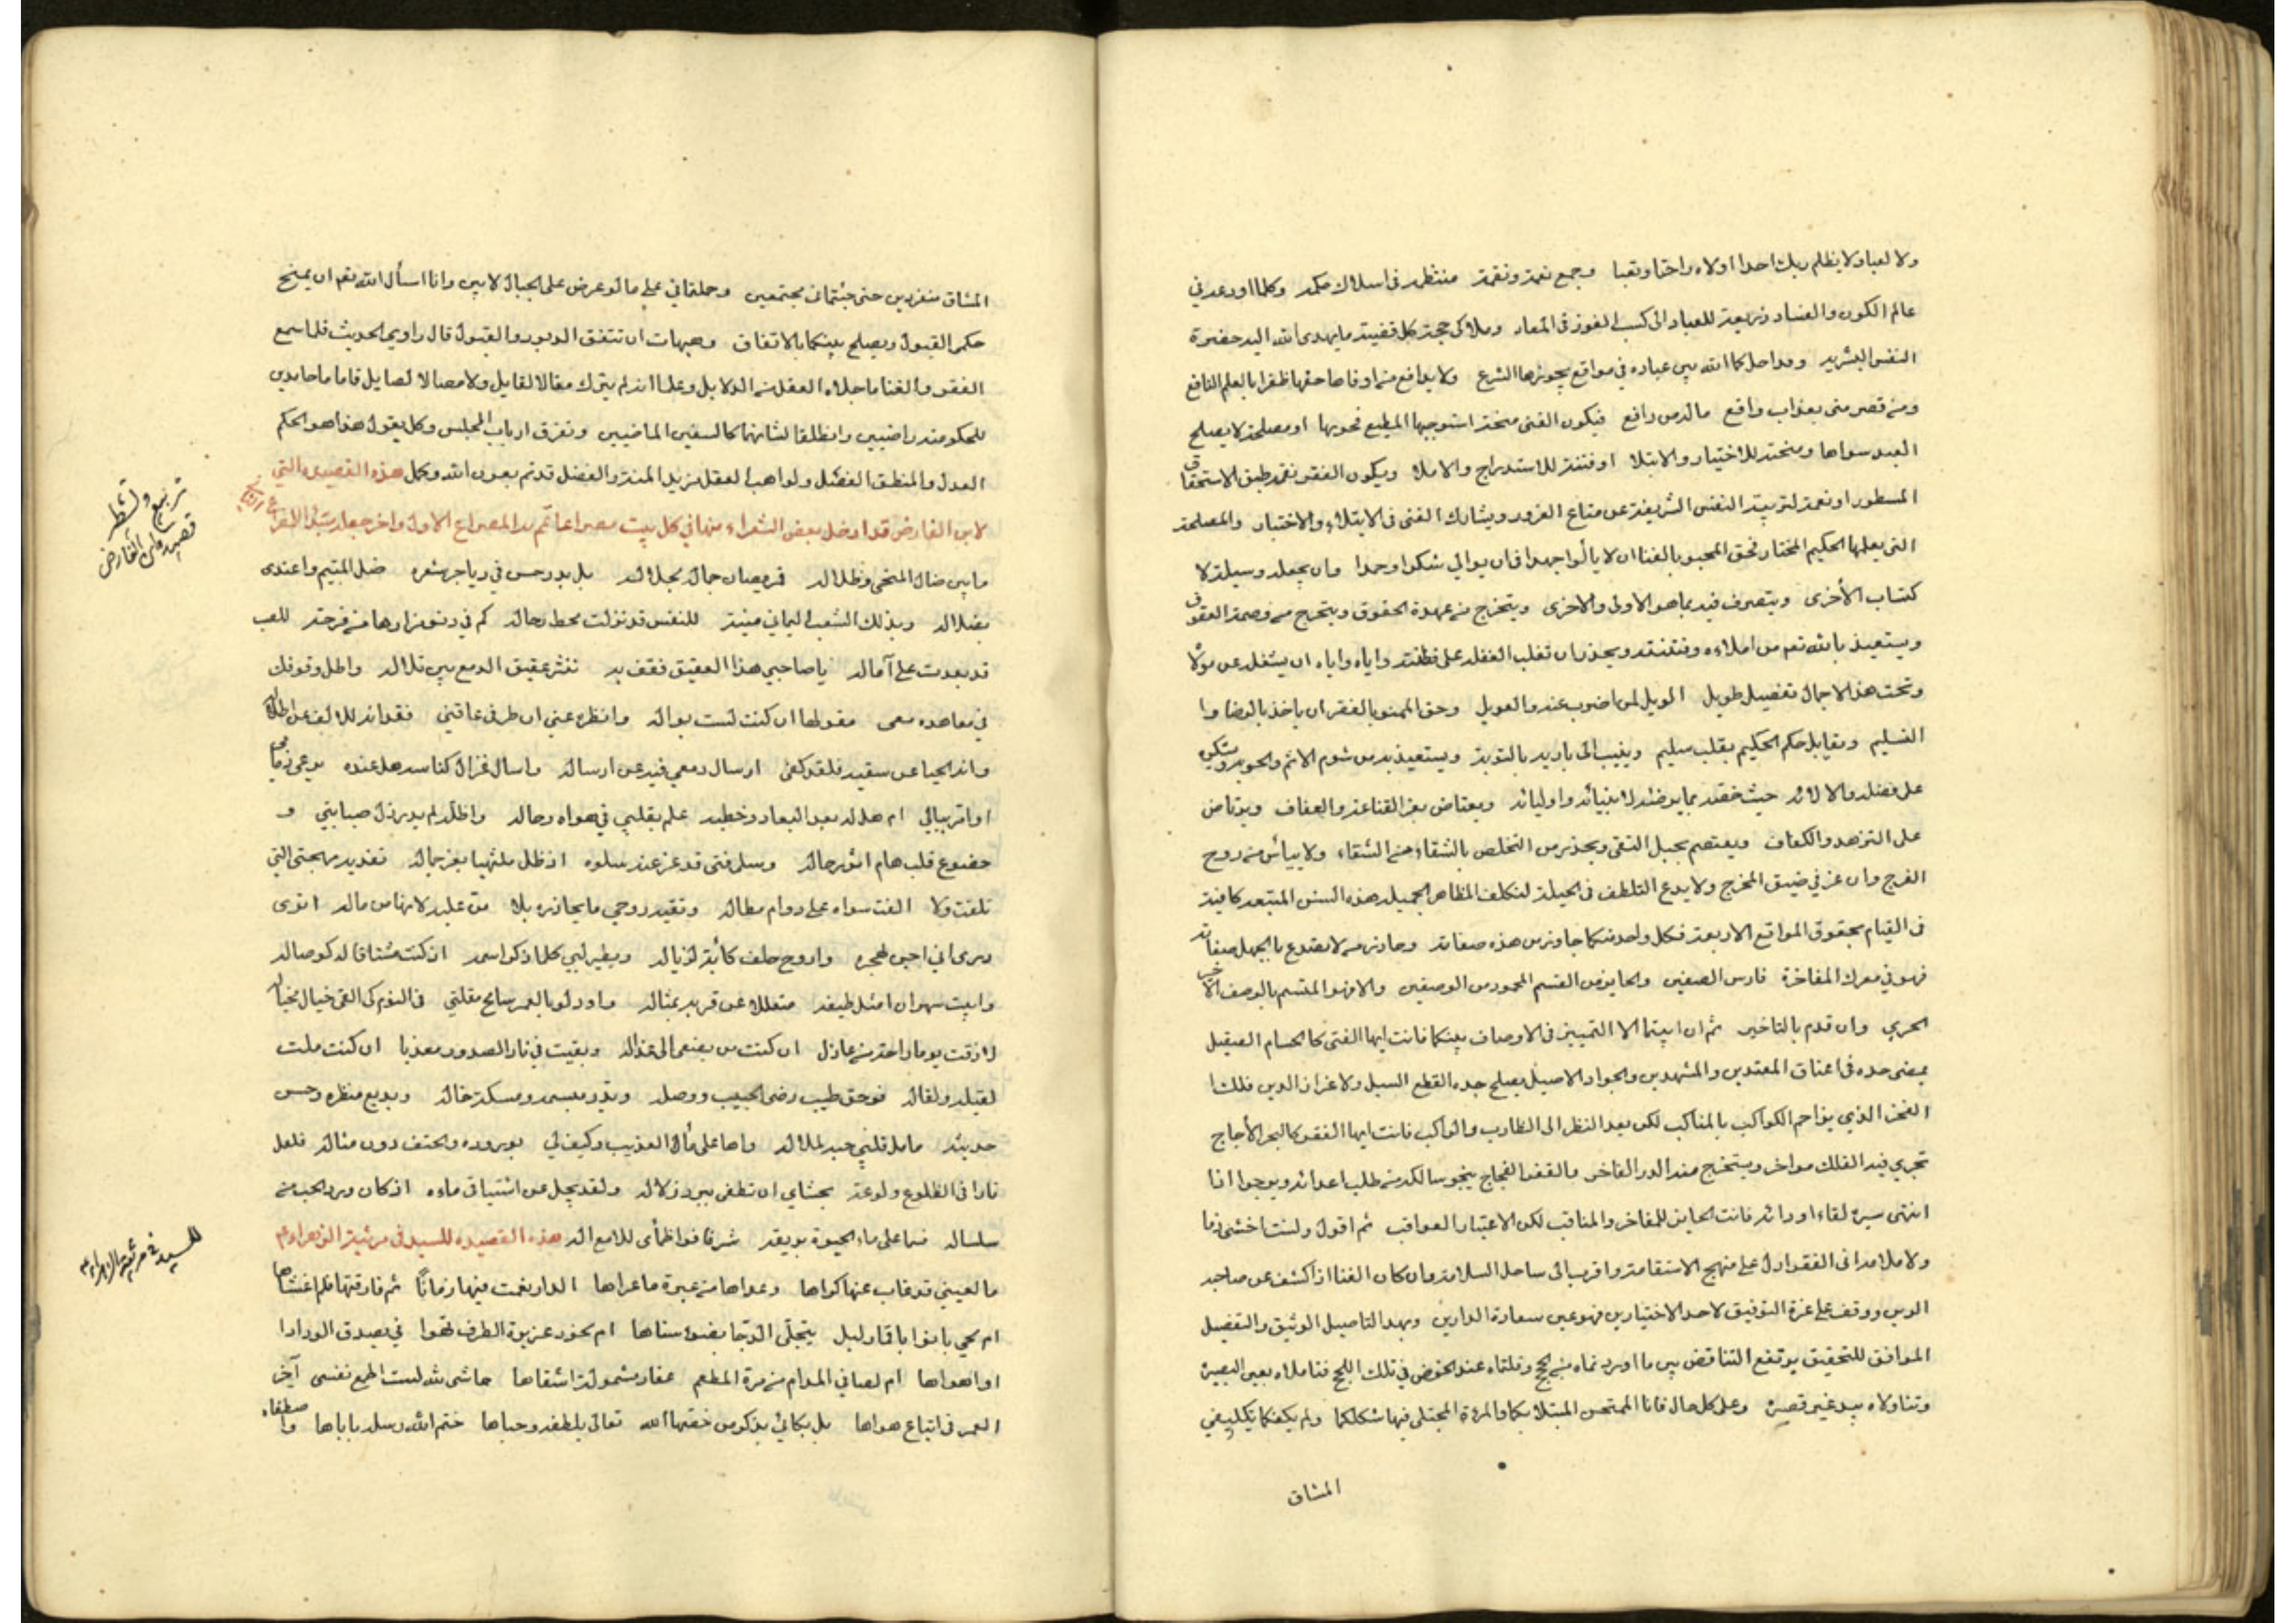 ولا لعبا ولا يظلم ربك احدا اولاه راحة او تعبا وجمع نعمة ونقمة منتظمة في اسلاك حكمه وكلما اودعه في
عالم الكون والفساد ذريعة للعباد الى كسب الفوز في المعاد وملاك حجة كل قضية ما يهدى الله اليه حضرة
النفس البشرية ومداحل كما الله بين عباده في مواقع يجوزها الشرع ولا يدافع من اوفاها حقها ظفرا بالعلم النافع
ومن قصر منى بعذاب واقع ماله من رافع فيكون الغنى منحة استوجبها المطيع نحوبها او مصلحة لا يصلح
العبد سواها ومنحة للاختيار والابتلا او فتنة للاستدراج والاملا ويكون الفقر نقمة طبق الاستحقاق
المسطور او نعمة لتربية النفس الشريفة عن متاع الغرور ويشارك الغنى في الابتلاء والاختبار والمصلحة
التي يعلمها الحكيم المختار فحق المحبو بالغنا ان لا يألوا جهدا فان يوالي شكرا وحمدا وان يجعله وسيلة لا
كتساب الأخرى ويتصرف فيه بما هو الاولى والاحرى ويتخرج من عهدة الحقوق ويتحرج من وصمة العقوق
ويستعيذ بالله تعم من املاءه وفتنته ويحذر ان تغلب الغفلة على فطنته واياه واياه ان يشغله عن مولاه
وتحت هذا الاجمال تفصيل طويل الويل لمن اضرب عنه والعويل وحق الممنو بالفقر ان ياخذ بالرضا وا
لتسليم ويقابل حكم الحكيم بقلب سليم وينيب الى باريه بالتوبة ويستعيذ به من شوم الاثم والحوبة ويشكره
على فضله والائه حيث خصه بما يرضه لانبيائه واوليائه ويعتاض بعز القناعة والعفاف ويرتاض
على التزهد والكفاف ويعتصم بحبل التقى ويحذر من التخلص بالشقاء من الشقاء ولا ييأس من روح
الفرج وان عز في ضيق المخرج ولا يدع التلطف في الحيلة لتكلف المظاهر الجميلة هذه السنن المتبعة كافية
في القيام بحقوق المواقع الاربعة فكل واحد منكما جاوز من هذه صفاته وحاذر من لا يصدع بالجهل صفاته
فهو في معرك المفاخرة فارس الصفين والحايز من القسم المحمود من الوصفين والافهو المتسم بالوصف الاخير
الحري وان قدم بالتاخير ثم ان ابيتما الا التمييز في الاوصاف بينكما فانت ايها الغنى كالحسام الصيقيل
يمضى حده في اعناق المعتدين والمشهدين والجواد الاصيل يصلح جده القطع السبيل ولاعزاز الدين فلك
الفخر الذي يزاحم الكواكب بالمناكب لكن بعد النظر الى الضارب والراكب فانت ايها الفقر كالبحر الأجاج
تجري فيه الفلك مواخر ويستخرج منه الدر الفاخر والقفر الفجاج ينجو سالكه من طلب اعدائه ويرجوا اذا
انتهى سيره لقاء اودائه فانت الحايز للمفاخر والمناقب لكن الاعتبار بالعواقب ثم اقول ولست اخشى ذما
ولا ملاما اني الفقر ادل على منهج الاستقامة واقرب الى ساحل السلامة وان كان الغنا اذا كشف عن صاحبه
الرين ووقف على عزة التوفيق لاحد الاختيارين فهو عين سعادة الدارين وبهذا التاصيل الوثيق والتفصيل
الموافق للتحقيق يرتفع التناقض بين ما اوردتماه من حجج وقلتماه عند الخوض في تلك اللجج فتاملاه بعين البصيرة
وتناولاه بيد غير قصيرة وعلى كل حال فانا الممتحن المبتلا بكما والمرءة المجتلى فيها شكلكما ولم يكفكما تكليفي
المشاق
المشاق منفردين حتى جئتماني مجتمعين وحملتماني على ما لو عرض على الجبال لابين وانا اسأل الله تعم ان يمنح
حكمي القبول ويصلح بينكما بالاتفاق وهيهات ان تتفق الدبور والقبول قال راوي الحديث فلما سمع
الفقر والغنا ما جلاه العقل من الدلايل وعلما انه لم يترك مقالا لقايل ولا مصالا لصايل قاما ما حامدين
للحكومة راضيين وانطلقا لشانهما كالسيفين الماضيين وتفرق ارباب المجلس وكل يقول هذا هو الحكم
العدل والمنطق الفصل ولواهب العقل مزيد المنة والفضل قد تم بعون الله وكمل هذه القصيده التي
لابن الفارض قد ادخل بعض الشعراء منها في كل بيت مصراعا تم به المصراع الاول واخر جعله
ما بين ضال المنحنى وظلاله قمر يصان جماله بجلاله بل بدر حسن في دياجر شعره ضل المتيم واهتدى
بضلاله وبذلك الشعب اليماني منية للنفس قد نزلت محط رحاله كم في دنو مزارها من فرحة للصب
قد بعدت على آماله يا صاحبي هذا العقيق فقف به نثر عقيق الدمع بين تلاله واطل وقوفك
في معاهده معى متولها ان كنت لست بواله وانظره عني ان طرفي عاقني فقدانه للالف عن اطلاله
واند الحيا عن سقيه فلقد كفى ارسال دمعي فيه عن ارساله واسال غزال كناسه هل عنده يوعى ذمامي
او اقر ببالي ام هل له بعد البعاد وخطبه علم بقلبي في هواه وحاله واظنه لم يدر ذل صبابتي و
خضوع قلب هام اثر جماله وسل فتى قد عز عنه سلوه اذ ظل ملتهيا بعز جماله تفديه مهجتي التي
تلفت ولا الفت سواه على دوام مطاله وتقيه روحي ما يحاذره بلا من عليه لانها من ماله اترى
درى اني احن لهجره واروح حلف كآبة لزياله ويطير لبي كلما ذكر اسمه اذ كنت مشتاقا له كوصاله
وابيت سهران امثل طيفه متعللا عن قربه بمثاله واود لو بالعمر سامح مقلتي في النوم كى القى خيال خياله
لا ذقت يوما راحة من عاذل ان كنت من يصغى الى عذاله وبقيت في نار الصدود معذبا ان كنت ملت
لقيله ولقاله فوحق طيب رضى الحبيب ووصله وبدر مبسمه ومسكة خاله وبديع منظره وحسن
حديثه ما مل قلبي حبه لملاله واها على ماء العذيب وكيف لي بوروده والحتف دون مناله فلعل
نارا في الضلوع ولوعة بحشاي ان تطفى ببرد زلاله ولقد يجل عن اشتياقي ماءه اذ كان ورد الحب من
سلساله فسما على ماء الحيوة بريقه شرفا فوا ظمأى للامع اله هذه القصيده للسيد في مرثية الزهراء ع
ما لعيني قد غاب عنها كراها وعراها من عبرة ما عراها الدار نعمت فيها زمانًا ثم فارقتها فلم اغشاها
ام لحي بانوا باقمار ليل يتجلى الدجا بضوء سناها ام لخود عزيزة الطرف تهوا في بصدق الودادا
او اهواها ام لصافي المدام من مزة المطعم عقار مشمولة اسقاها حاشى لله لست اطمع نفسى آخر
العمر في اتباع هواها بل بكائي بذكر من خصها الله تعالى بلطفه وحباها ختم الله رسله باباها واصطفاه
تربيع وتشطير
قصيدة لابن الفارض
للسيد في مرثية الزهراء ع